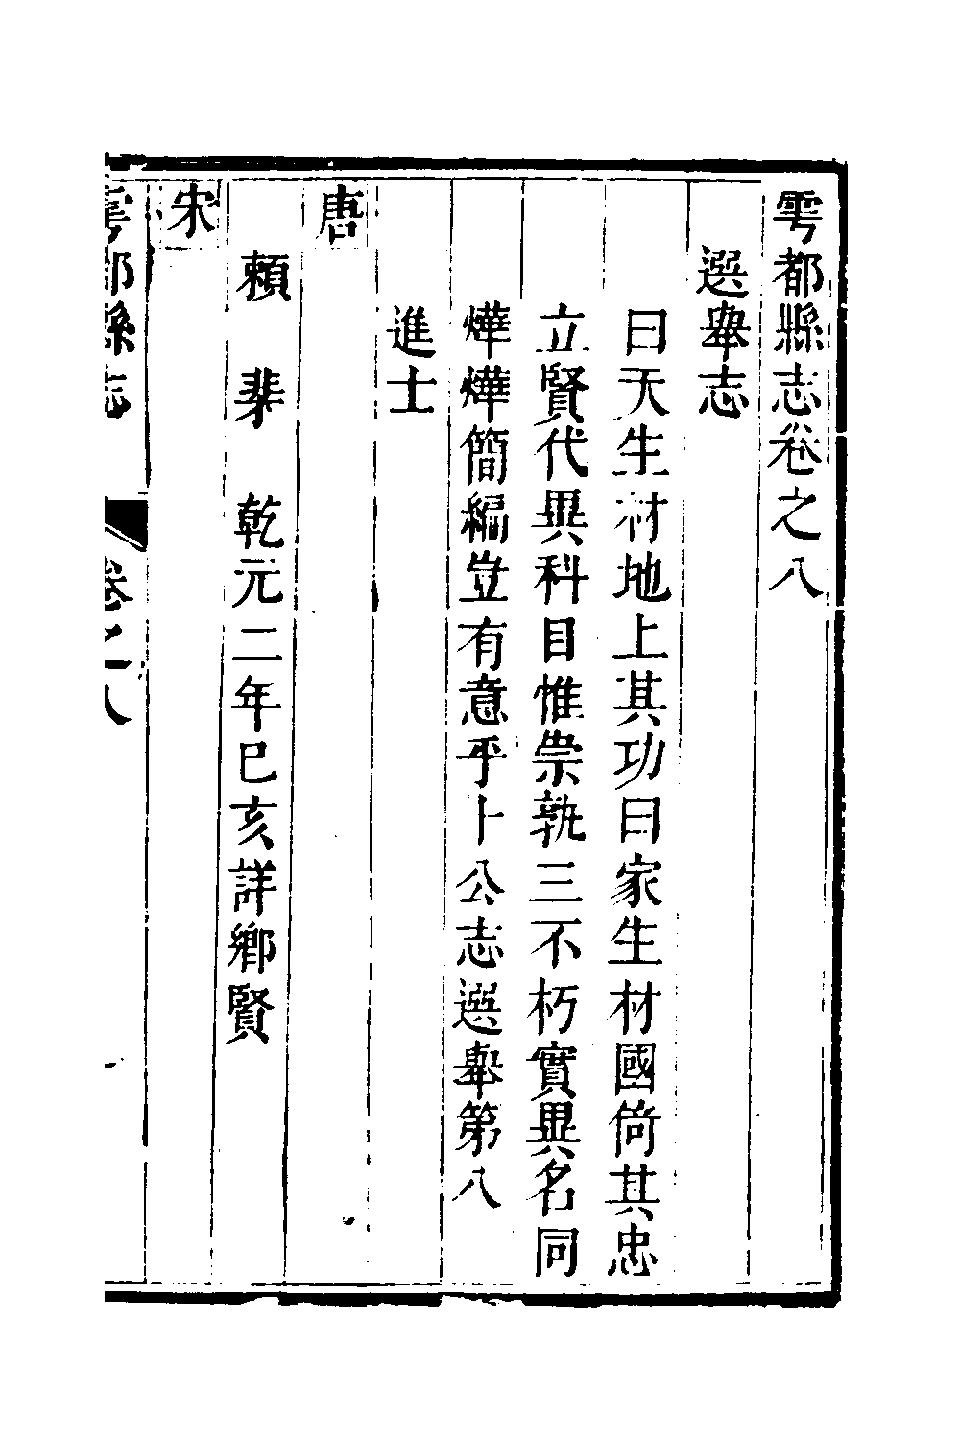 雩都縣志卷之八
選舉志
曰天生材地上其功曰家生材國倚其忠
立賢代異科目惟崇孰三不朽實異名同
燁燁簡編豈有意乎卜公志選舉第八
進士
唐
賴棐 乾元二年巳亥詳鄉賢
宋
雩都縣志 卷之八